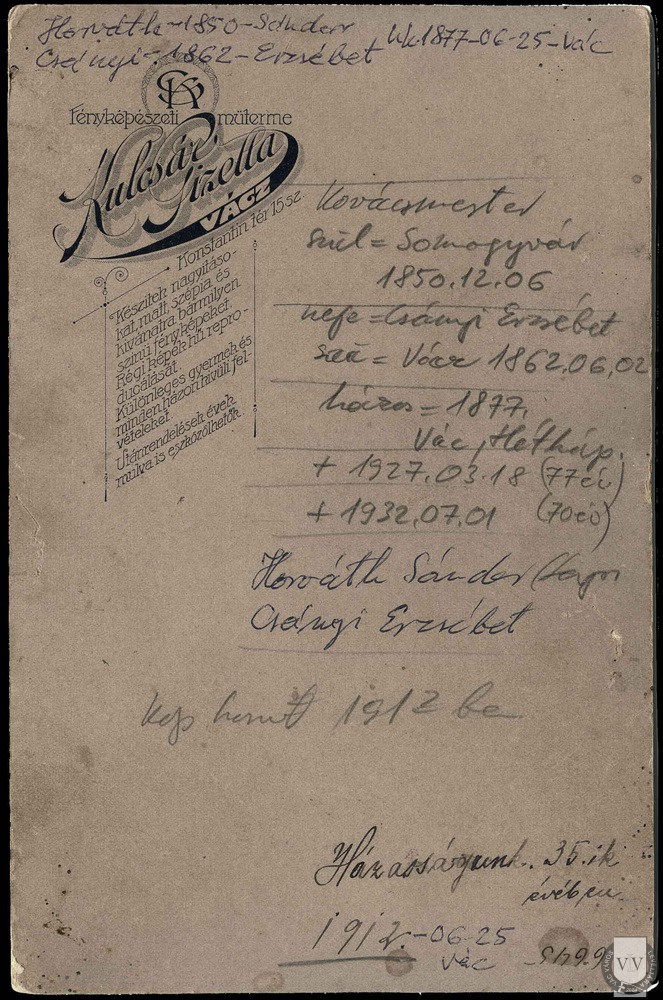 Horváth-1850-Sándor
Csányi-1862-Erzsébet Hk.1877-06-25-Vác
GK
Fényképészeti műterme
Kulcsár Gizella
VÁCZ
Konstantin tér 15 sz.
Készitek nagyításo-
kat, matt, szépia és
kivánatra bármilyen
szinű fényképeket.
Régi képek hű repro-
ducálását.
Különleges gyermek és
minden házon kivüli fel-
vételeket.
Utánrendelések évek
mulva is eszközölhetők.
Kovácsmester
szül = Somogyvár
1850.12.06
neje = Csányi Erzsébet
szü = Vác 1862.06.02
házas = 1877.
Vác, Hétkáp.
+ 1927.03.18 (77 év)
+ 1932.07.01 (70 év)
Horváth Sándor
Csányi Erzsébet
Kép 1912 be
Házasságunk 35.ik
évében
1912.-06-25
Vác
VV